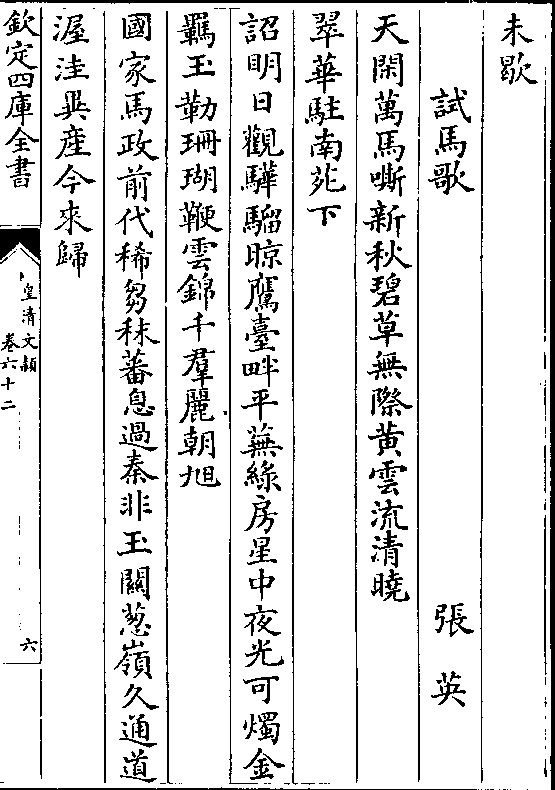 未歇
試馬歌　張英
天閑萬馬嘶新秋碧草無際黄雲流清曉
翠華駐南苑下
詔明日觀驊騮晾鷹臺畔平蕪綠房星中夜光可燭金
羈玉勒珊瑚鞭雲錦千羣麗朝旭
國家馬政前代稀芻秣蕃息過秦非玉關葱嶺久通道
渥洼異産今來歸
欽定四庫全書
皇清文穎
卷六十二
六